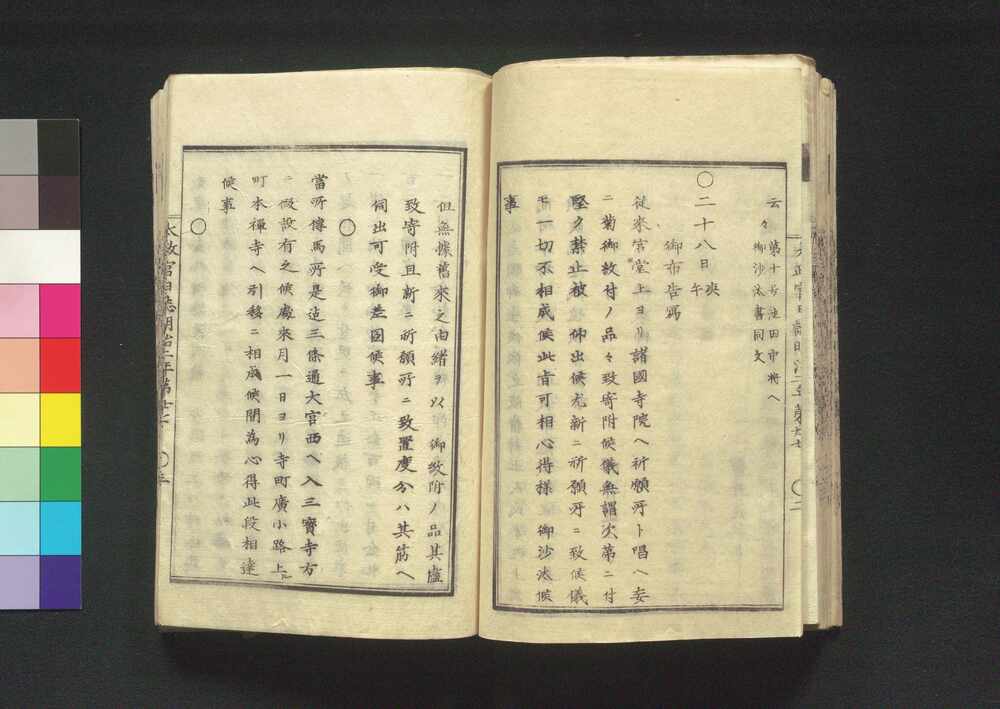 云々御沙汰書同文
第十五池田中将ヘ
〇二十八日庚午
御布告写
従来宮堂上ヨリ諸國寺院ヘ祈願所ト唱ヘ妄
ニ菊御紋付ノ品々致寄附候儀無謂次第ニ付
堅ク禁止被 仰出候尤新ニ祈願所ニ致候儀
モ一切不相成候此旨可相心得様 御沙汰候
事
但無據舊來之由緒ヲ以 御紋附ノ品其儘
致寄附且新ニ祈願所ニ致置度分ハ其筋ヘ
伺出可受御差圖候事
〇
當所傳馬所是迄三條通大宮西ヘ入三寳寺方
ニ假設有之候處來月一日ヨリ寺町廣小路上ル
町本禅寺ヘ引移ニ相成候間為心得此段相達
候事
〇
太政官日誌明治二年第廿七 〇三